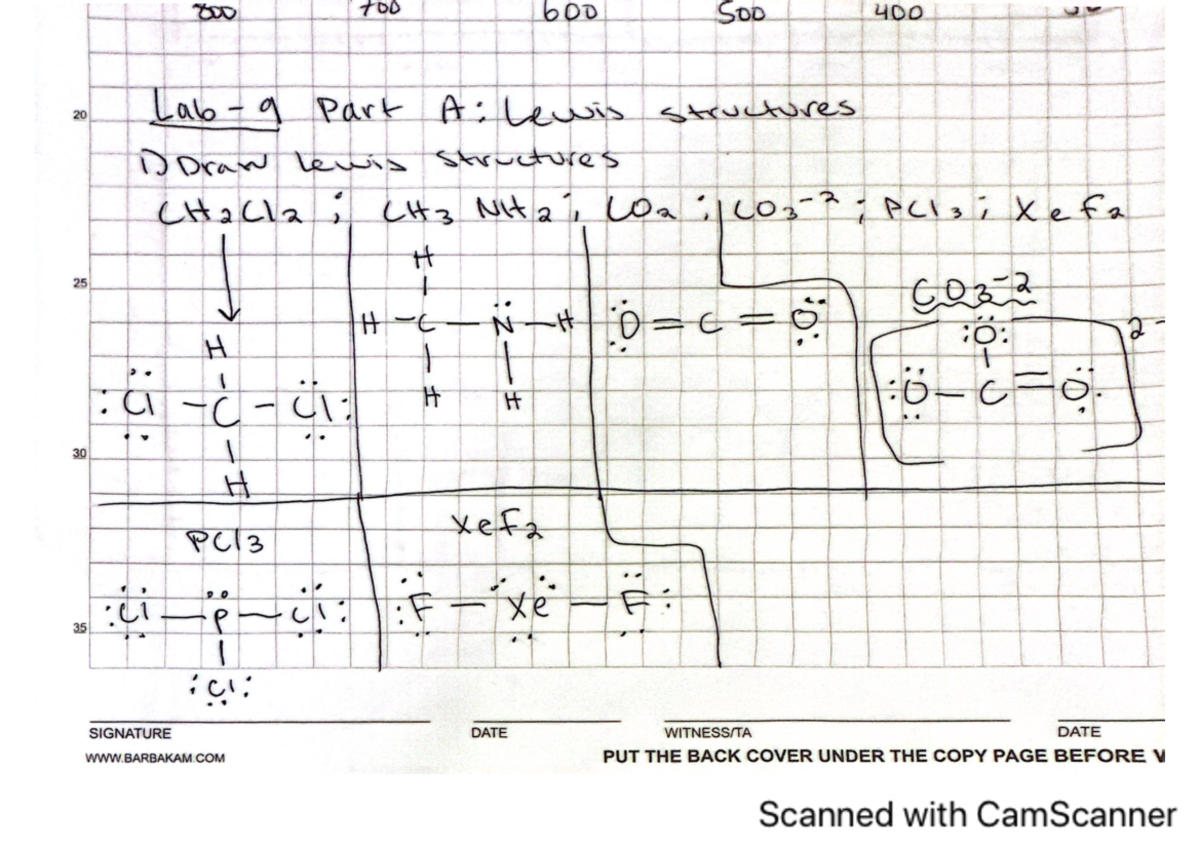 800 700 600 500 400
20
Lab-9 Part A: Lewis structures
1) Draw lewis structures
CH2Cl2 ; CH3 NH2 ; CO2 ; CO3-2 ; PCl3 ; XeF2
25
H
CO3-2
H - C - N - H
O = C = O
O
2-
H
H
H
Cl - C - Cl
O - C = O
30
H
PCl3
XeF2
35
Cl - P - Cl
F - Xe - F
Cl
SIGNATURE DATE WITNESS/TA DATE
WWW.BARBAKAM.COM PUT THE BACK COVER UNDER THE COPY PAGE BEFORE
Scanned with CamScanner